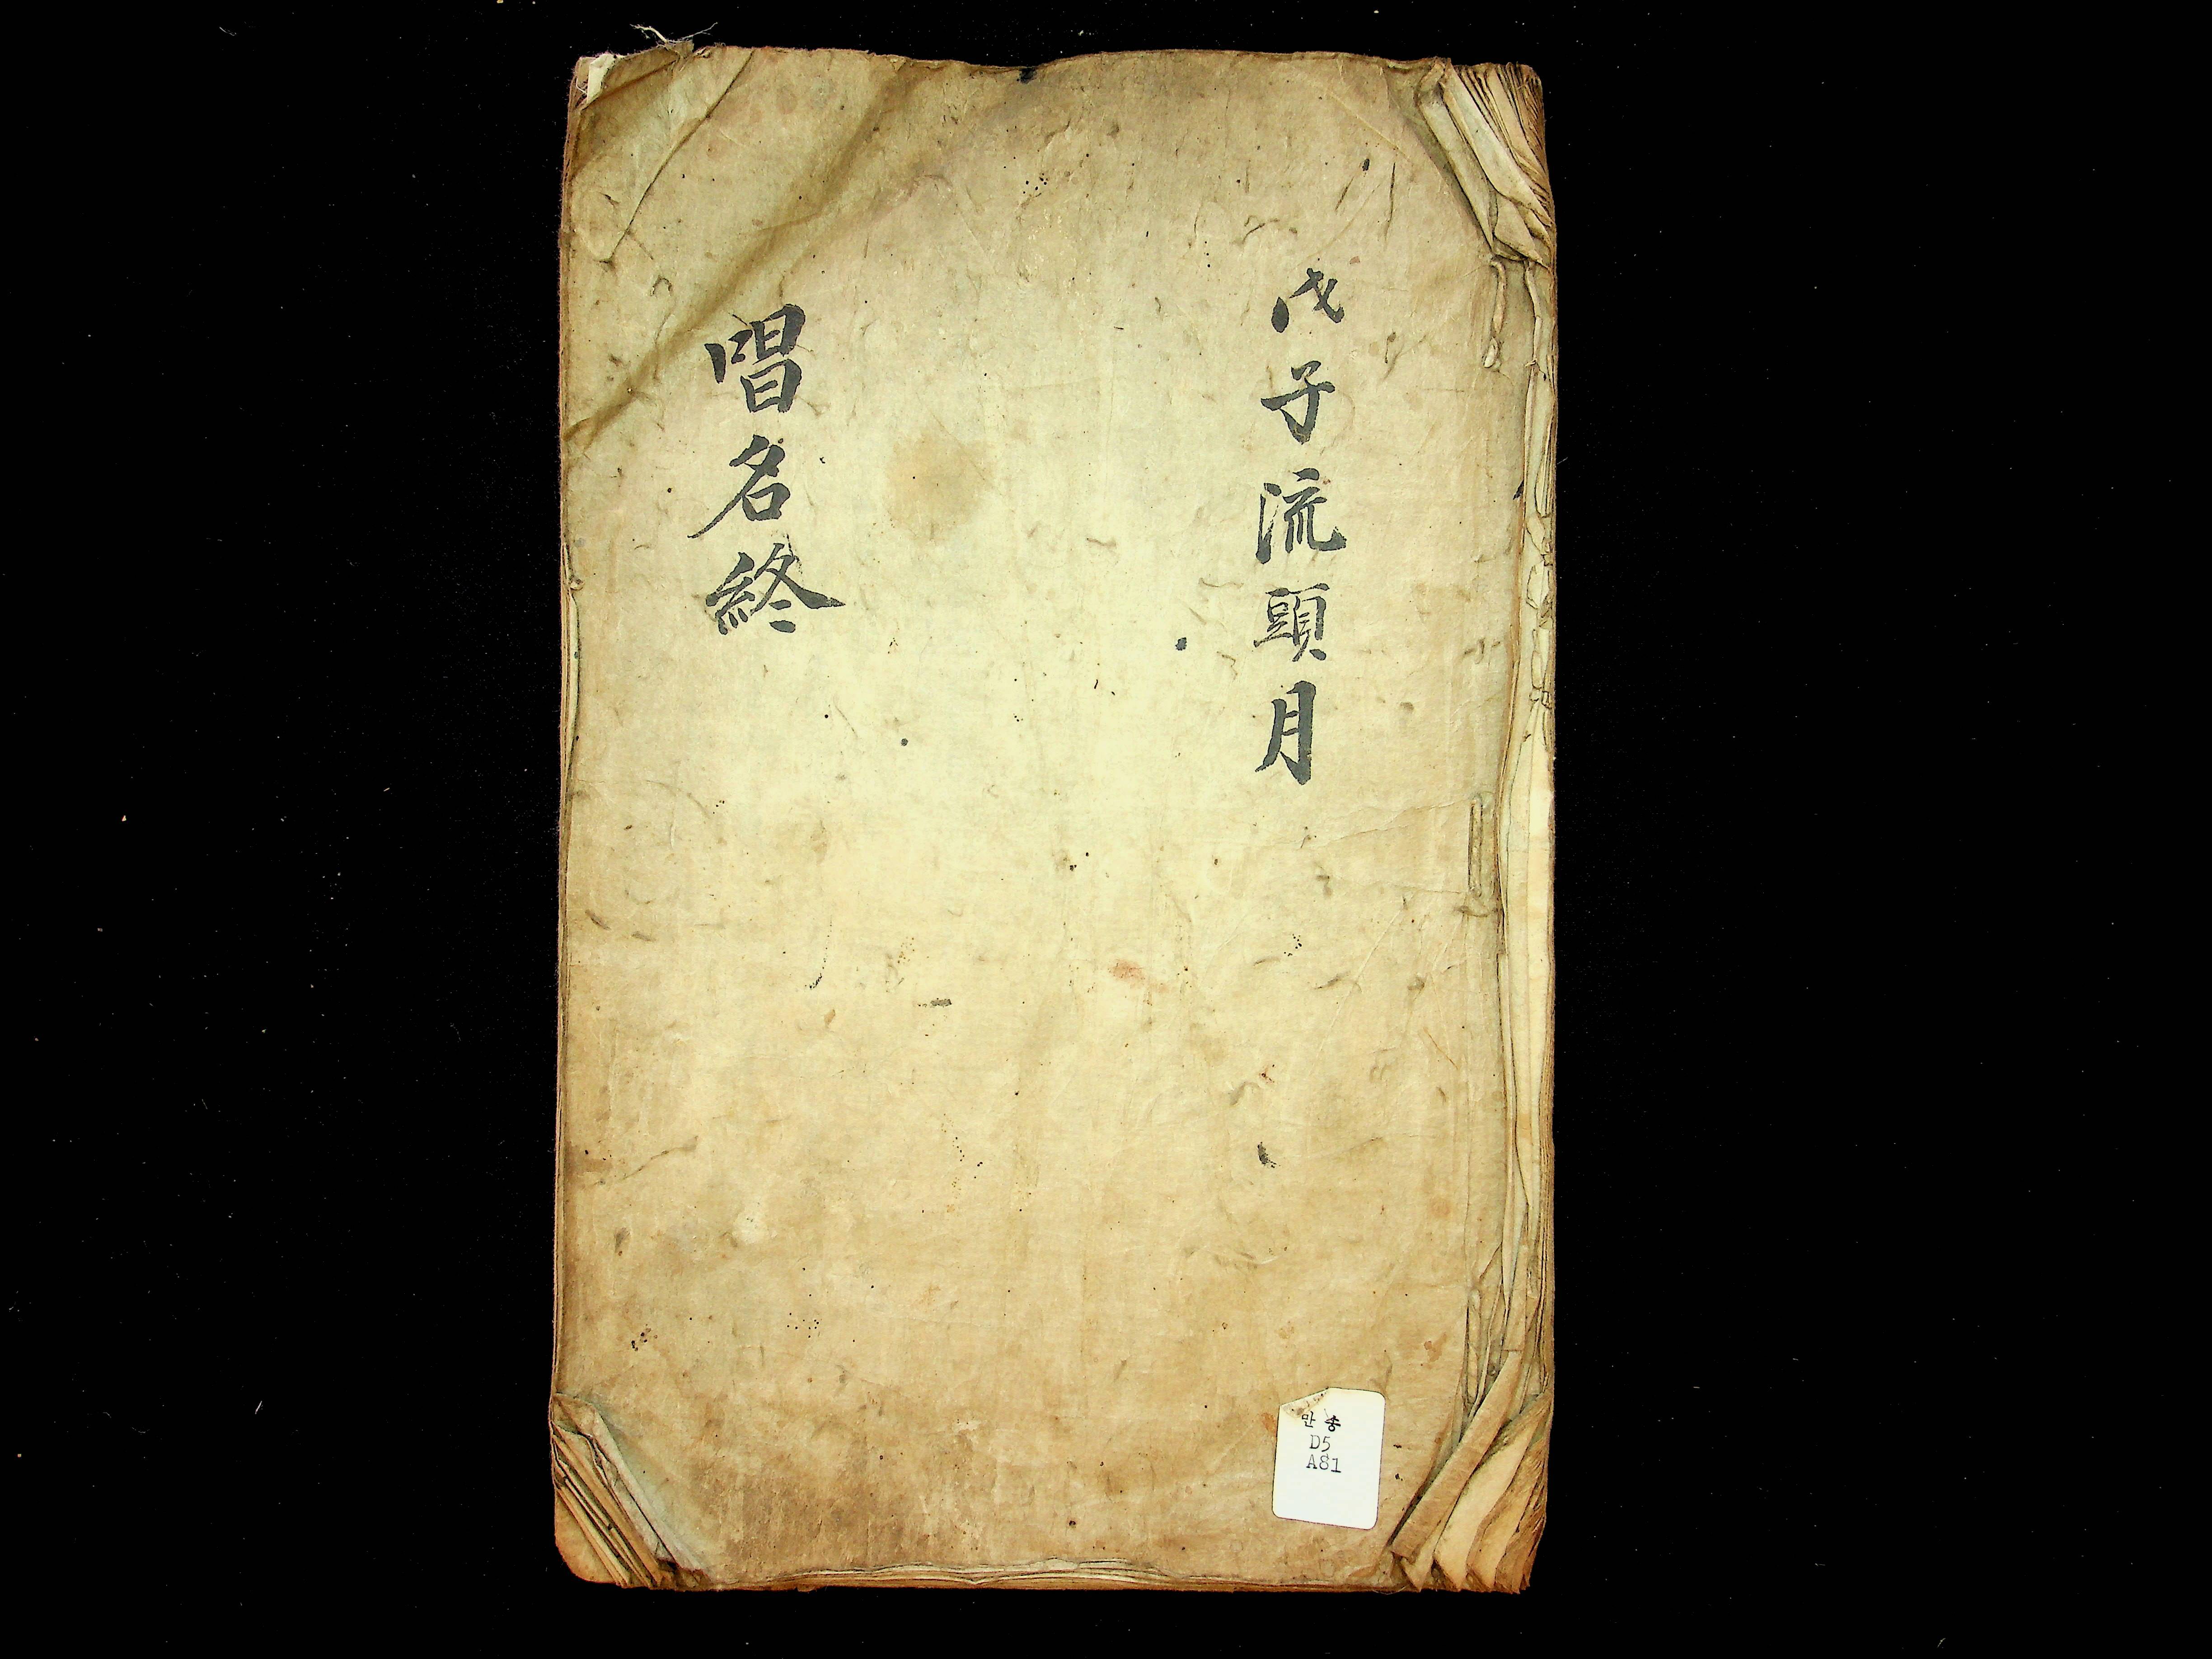 戊子流頭月
唱名終
만송
D5
A81